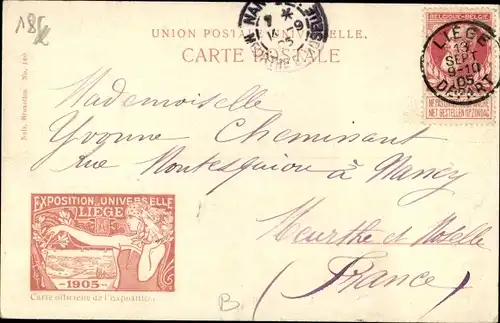 185
UNION POSTALE UNIVERSELLE.
CARTE POSTALE
BELGIQUE-BELGIE
LIEGE
13
SEPT
9-10
05
DEPART
NE PAS LIVRER LE DIMANCHE
NIET BESTELLEN OP ZONDAG
Nels, Bruxelles
Mademoiselle
Yvonne Cheminant
rue Montesquiou à Nancy
Meurthe et Moselle
(France)
EXPOSITION UNIVERSELLE
LIEGE
1905
Carte officielle de l'exposition.
B